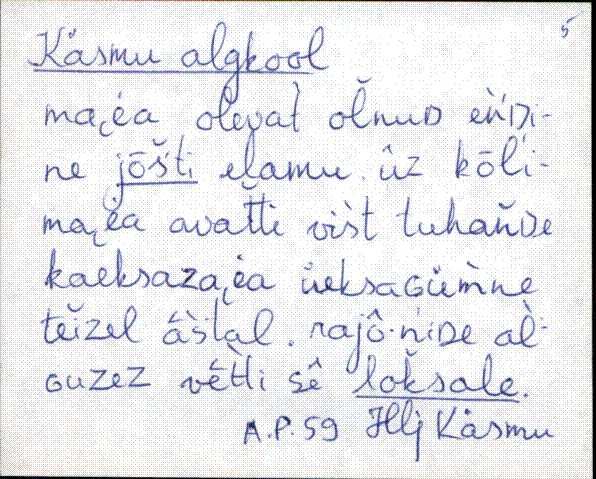 5
Käsmu algkool
mai̯a olevat̀ olnuD eǹDi-
ne jōšti elamu. ǖz kōli-
mai̯a avatti vist tuhanDe
kaeksaza, üeksaGümne
teizel āstal. rajō·niDe al-
Guzez vētti sē lokšale.
A.P. 59 Hlj Käsmu